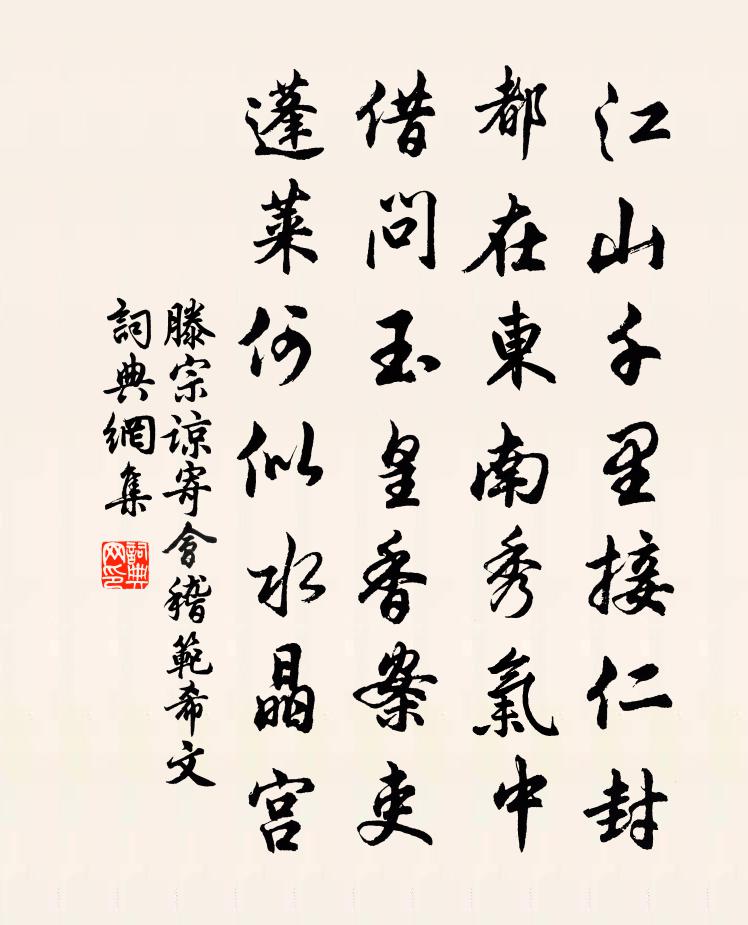 江山千里接仁封
都在東南秀氣中
借問玉皇香案吏
蓬萊何似水晶宮
滕宗諒寄會稽範希文
詞典網集
詞典網印